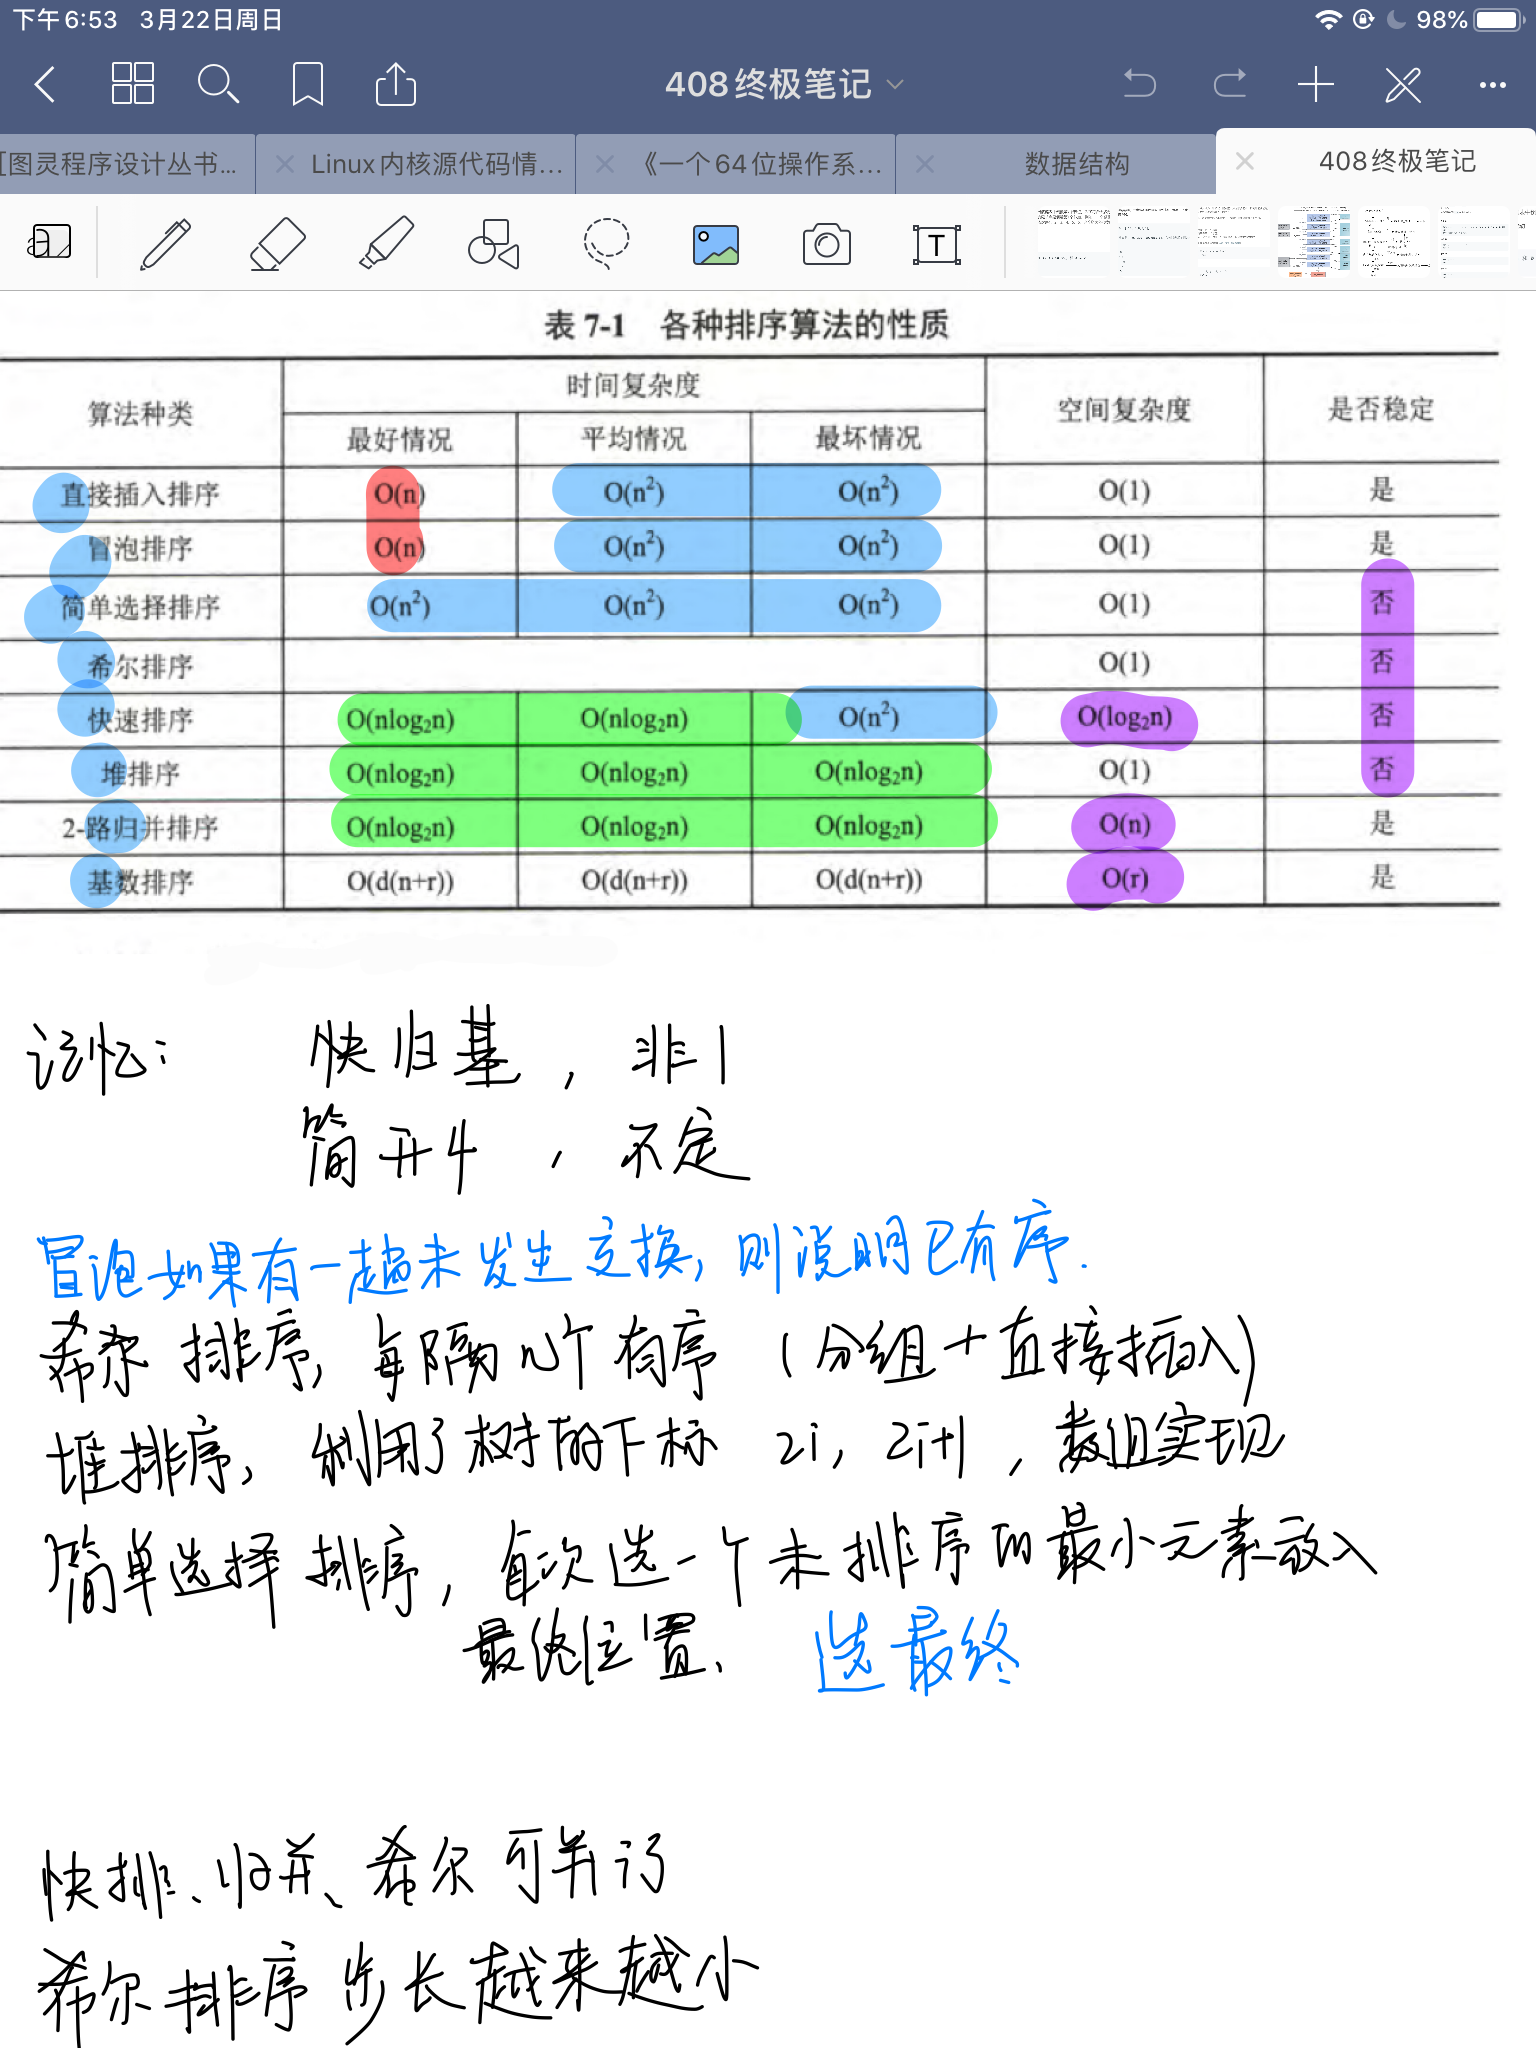 下午6:53 3月22日周日
98%
408终极笔记
[图灵程序设计丛书...
Linux内核源代码情...
《一个64位操作系...
数据结构
408终极笔记
表 7-1 各种排序算法的性质
算法种类 时间复杂度 空间复杂度 是否稳定
最好情况 平均情况 最坏情况
直接插入排序 O(n) O(n²) O(n²) O(1) 是
冒泡排序 O(n) O(n²) O(n²) O(1) 是
简单选择排序 O(n²) O(n²) O(n²) O(1) 否
希尔排序 O(1) 否
快速排序 O(nlog₂n) O(nlog₂n) O(n²) O(log₂n) 否
堆排序 O(nlog₂n) O(nlog₂n) O(nlog₂n) O(1) 否
2-路归并排序 O(nlog₂n) O(nlog₂n) O(nlog₂n) O(n) 是
基数排序 O(d(n+r)) O(d(n+r)) O(d(n+r)) O(r) 是
记忆： 快归基，非1
简开4，不定
冒泡如果有一趟未发生交换，则说明已有序.
希尔排序，每隔n个有序（分组+直接插入）
堆排序，利用了树的下标 2i, 2i+1，数组实现
简单选择排序，每次选一个未排序的最小元素放入
最终位置、 选最终
快排、归并、希尔可并行
希尔排序步长越来越小